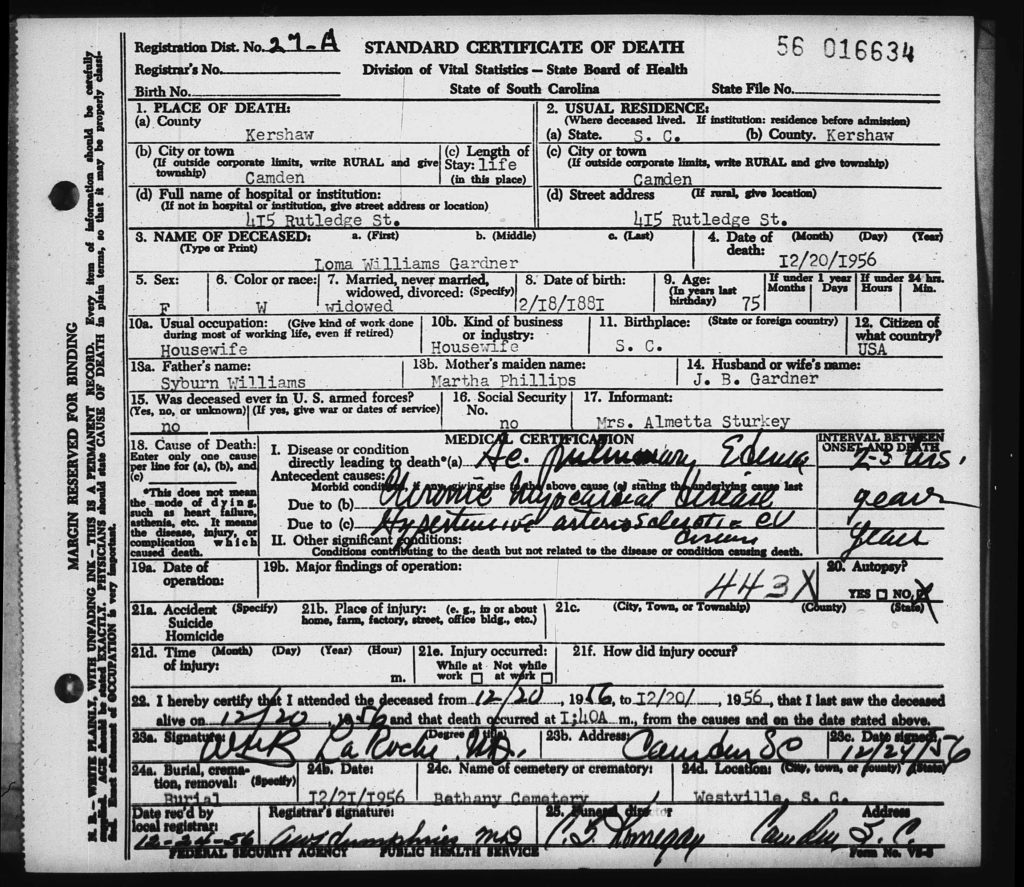 Registration Dist. No. 27-A
STANDARD CERTIFICATE OF DEATH
56 016634
Registrar's No.
Division of Vital Statistics — State Board of Health
Birth No.
State of South Carolina
State File No.
1. PLACE OF DEATH:
(a) County
Kershaw
2. USUAL RESIDENCE:
(Where deceased lived. If institution: residence before admission)
(a) State. S. C. (b) County. Kershaw
(b) City or town
(If outside corporate limits, write RURAL and give
township) Camden
(c) Length of
Stay: life
(in this place)
(c) City or town
(If outside corporate limits, write RURAL and give township)
Camden
(d) Full name of hospital or institution:
(If not in hospital or institution, give street address or location)
4I5 Rutledge St.
(d) Street address (If rural, give location)
4I5 Rutledge St.
3. NAME OF DECEASED: a. (First) b. (Middle) c. (Last)
(Type or Print)
Loma Williams Gardner
4. Date of (Month) (Day) (Year)
death:
I2/20/I956
5. Sex:
F
6. Color or race:
W
7. Married, never married,
widowed, divorced: (Specify)
widowed
8. Date of birth:
2/I8/I88I
9. Age:
(In years last
birthday) 75
If under 1 year
Months Days
If under 24 hrs.
Hours Min.
10a. Usual occupation: (Give kind of work done
during most of working life, even if retired)
Housewife
10b. Kind of business
or industry:
Housewife
11. Birthplace: (State or foreign country)
S. C.
12. Citizen of
what country?
USA
13a. Father's name:
Syburn Williams
13b. Mother's maiden name:
Martha Phillips
14. Husband or wife's name:
J. B. Gardner
15. Was deceased ever in U. S. armed forces?
(Yes, no, or unknown) (If yes, give war or dates of service)
no
16. Social Security
No.
no
17. Informant:
Mrs. Almetta Sturkey
18. Cause of Death:
Enter only one cause
per line for (a), (b), and
(c)
*This does not mean
the mode of dying,
such as heart failure,
asthenia, etc. It means
the disease, injury, or
complication which
caused death.
MEDICAL CERTIFICATION
I. Disease or condition
directly leading to death*(a) Ac. pulmonary Edema
Antecedent causes:
Morbid conditions, if any, giving rise to the above cause (a) stating the underlying cause last
Due to (b) Chronic Myocardial disease
Due to (c) Hypertensive arteriosclerotic CV
disease
II. Other significant conditions:
Conditions contributing to the death but not related to the disease or condition causing death.
INTERVAL BETWEEN
ONSET AND DEATH
2-3 hrs.
years
years
19a. Date of
operation:
19b. Major findings of operation:
443X
20. Autopsy?
YES NO X
21a. Accident (Specify)
Suicide
Homicide
21b. Place of injury: (e. g., in or about
home, farm, factory, street, office bldg., etc.)
21c. (City, Town, or Township) (County) (State)
21d. Time (Month) (Day) (Year) (Hour)
of injury: m.
21e. Injury occurred:
While at Not while
work at work
21f. How did injury occur?
22. I hereby certify that I attended the deceased from 12/20, 1956, to I2/20/, 1956, that I last saw the deceased
alive on 12/20, 1956 and that death occurred at I;40A m., from the causes and on the date stated above.
23a. Signature: (Degree or title)
LaRoche MD.
23b. Address:
Camden SC
23c. Date signed:
12/24/56
24a. Burial, crema-
tion, removal: (Specify)
Burial
24b. Date:
I2/2I/I956
24c. Name of cemetery or crematory:
Bethany Cemetery
24d. Location: (City, town, or county) (State)
Westville, S. C.
Date rec'd by
local registrar:
12-24-56
Registrar's signature:
AWHumphries MD
25. Funeral director Address
Camden S. C.
FEDERAL SECURITY AGENCY PUBLIC HEALTH SERVICE
Form No. VS-3
MARGIN RESERVED FOR BINDING
N. B. — WRITE PLAINLY, WITH UNFADING INK — THIS IS A PERMANENT RECORD. Every item of information should be carefully
supplied. AGE should be stated EXACTLY. PHYSICIANS should state CAUSE OF DEATH in plain terms, so that it may be properly classi-
fied. Exact statement of OCCUPATION is very important.